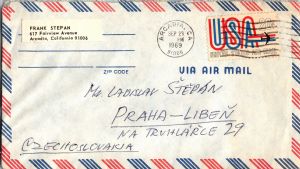 FRANK STEPAN
617 Fairview Avenue
Arcadia, California 91006
ARCADIA, CA
SEP 23
PM
1969
USA
ZIP CODE
VIA AIR MAIL
Mr. LADISLAV ŠTĚPÁN
PRAHA-LIBEŇ
NA TRUHLÁŘCE 29
CZECHOSLOVAKIA